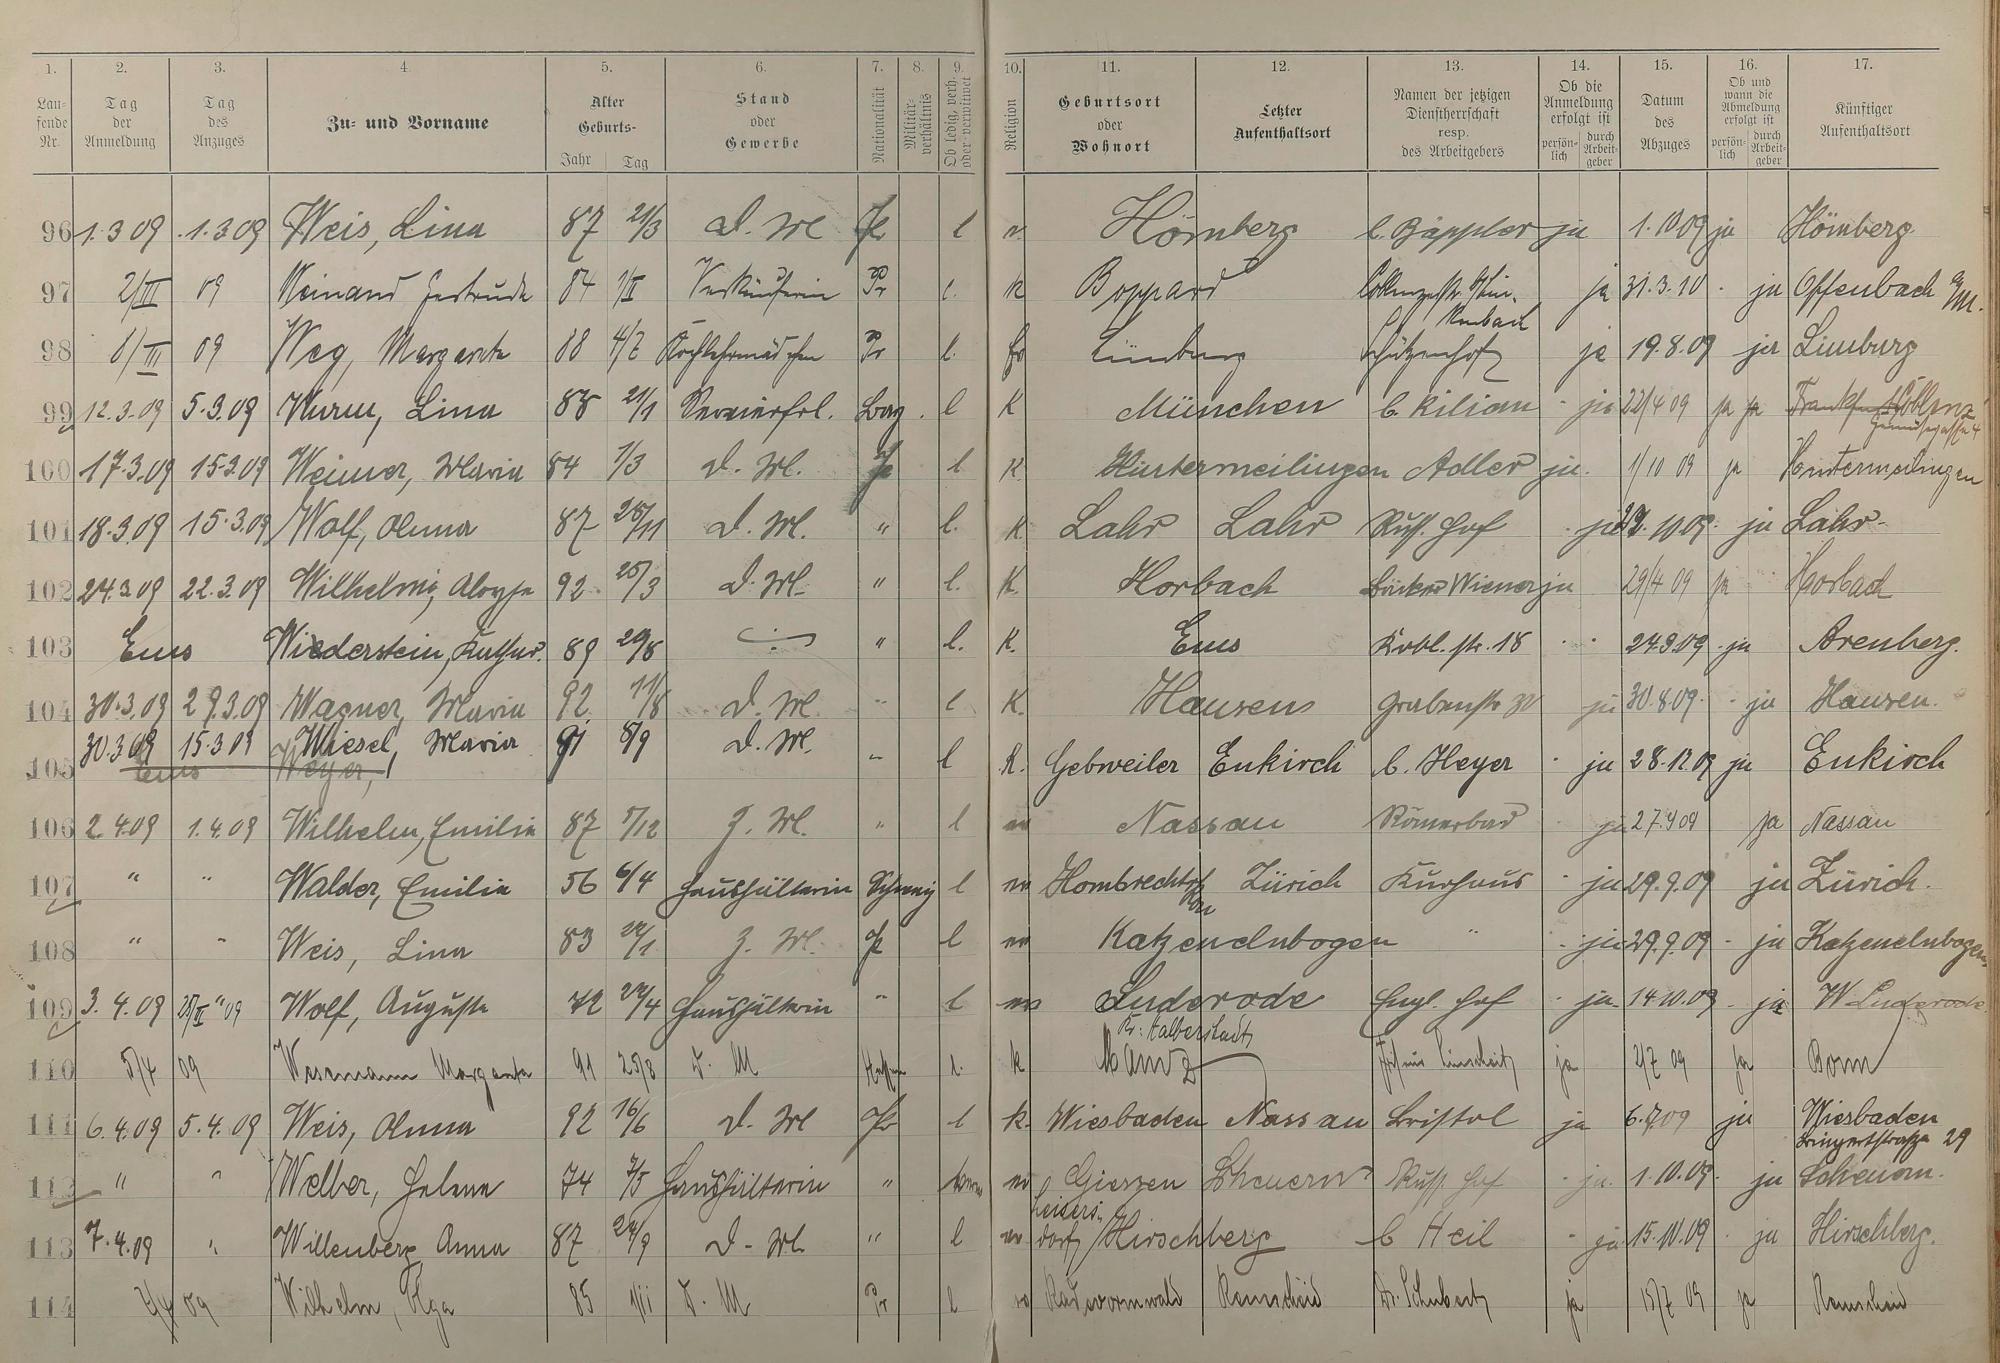 1. 2. 3. 4. 5. 6. 7. 8. 9. 10. 11. 12. 13. 14. 15. 16. 17.
Lau- fende Nr. | Tag der Anmeldung | Tag des Anzuges | Zu- und Vorname | Alter Geburts- Jahr Tag | Stand oder Gewerbe | Nationalität | Militär- verhältnis | Ob ledig, verh. oder verwitwet | Religion | Geburtsort oder Wohnort | Letzter Aufenthaltsort | Namen der jetzigen Dienstherrschaft resp. des Arbeitgebers | Ob die Anmeldung erfolgt ist persön- lich durch Arbeit- geber | Datum des Abzuges | Ob und wann die Abmeldung erfolgt ist persön- lich durch Arbeit- geber | Künftiger Aufenthaltsort
96 1.3 09 1.3.09 Weis, Lina 87 21/3 D. M Pr l Hömberg b. Bäppler ja 1.10.09 ja Hömberg
97 2/III 09 Weinand Gertrude 84 1/II Verkäuferin Pr l. k Boppard ja 31.3.10 ja Offenbach a/M.
98 1/III 09 Weg, Margarete 88 4/2 Kochlehrmädchen Pr l. Limburg Schützenhof ja 19.8.09 ja Limburg
99 12.3.09 5.3.09 Wurm, Lina 88 21/1 Servierfrl. l K München b. Kilian ja 22/4 09 ja ja Koblenz
100 17.3.09 15.3.09 Weimer, Maria 84 1/3 D. M. Pr l K. Hintermeilingen Adler ja. 1/10 09 ja Hintermeilingen
101 18.3.09 15.3.09 Wolf, Anna 87 28/11 D. M. " l. K Lahr Lahr Russ. Hof ja 10.09. ja Lahr
102 24.3.09 22.3.09 Wilhelmi, Aloysia 92 25/3 D. M. " l. K. Horbach Bäcker Wiener ja 29/4 09 ja Horbach
103 Ems Wiederstein, Kathar. 89 29/8 " l. K. Ems Kobl. str. 18 24.3.09 ja Arenberg.
104 30.3.09 29.3.09 Wagner, Maria 92. 11/8 D. M. " l K. Hausen Grabenstr ja 30.8.09. ja Hausen.
30.3.09 15.3 09 Wiesel, Maria 91 8/9 D. M.
105 Ems Weyer, " l K. Gebweiler Enkirch b. Heyer ja 28.12.09 ja Enkirch
106 2.4.09 1.4.09 Wilhelm, Emilie 87 5/12 Z. M. " l ev Nassau Römerbad ja 27.4 09 ja Nassau
107 " " Walder, Emilie 56 6/4 Haushälterin Schweiz l ev Hombrechtikon Zürich Kurhaus ja 29.9.09 ja Zürich.
108 " " Weis, Lina 83 22/1 Z. M. Pr l ev Katzenelnbogen " ja 29.9.09 ja Katzenelnbogen
109 3.4.09 Wolf, Auguste 72 22/4 Haushälterin " l ev Suderode Engl. Hof ja 14.10.09 ja W Suderode
Kr: Halberstadt
110 5/4 09 Wessmann Margareta 91 25/8 D. M Hessen l. k Mainz ja 2/7 09 ja Bonn
111 6.4.09 5.4.09 Weis, Anna 92 16/6 D. M Pr l k. Wiesbaden Nassau Bristol ja 6.7.09 ja Wiesbaden
29
112 " " Welber, Helene 74 7/5 Haushälterin " ev Giessen Scheuern Russ. Hof ja. 1.10.09. ja Scheuern.
113 7.4.09 " Willenberg Anna 87 24/9 D. M " l ev Seifersdorf / Hirschberg b Heil ja 15.10.09 ja Hirschberg.
114 7/4 09 Wilhelm, Olga 85 1/11 D. M Pr l ev Radevormwald Remscheid Dr. Schubert ja 15/7 09 ja Remscheid